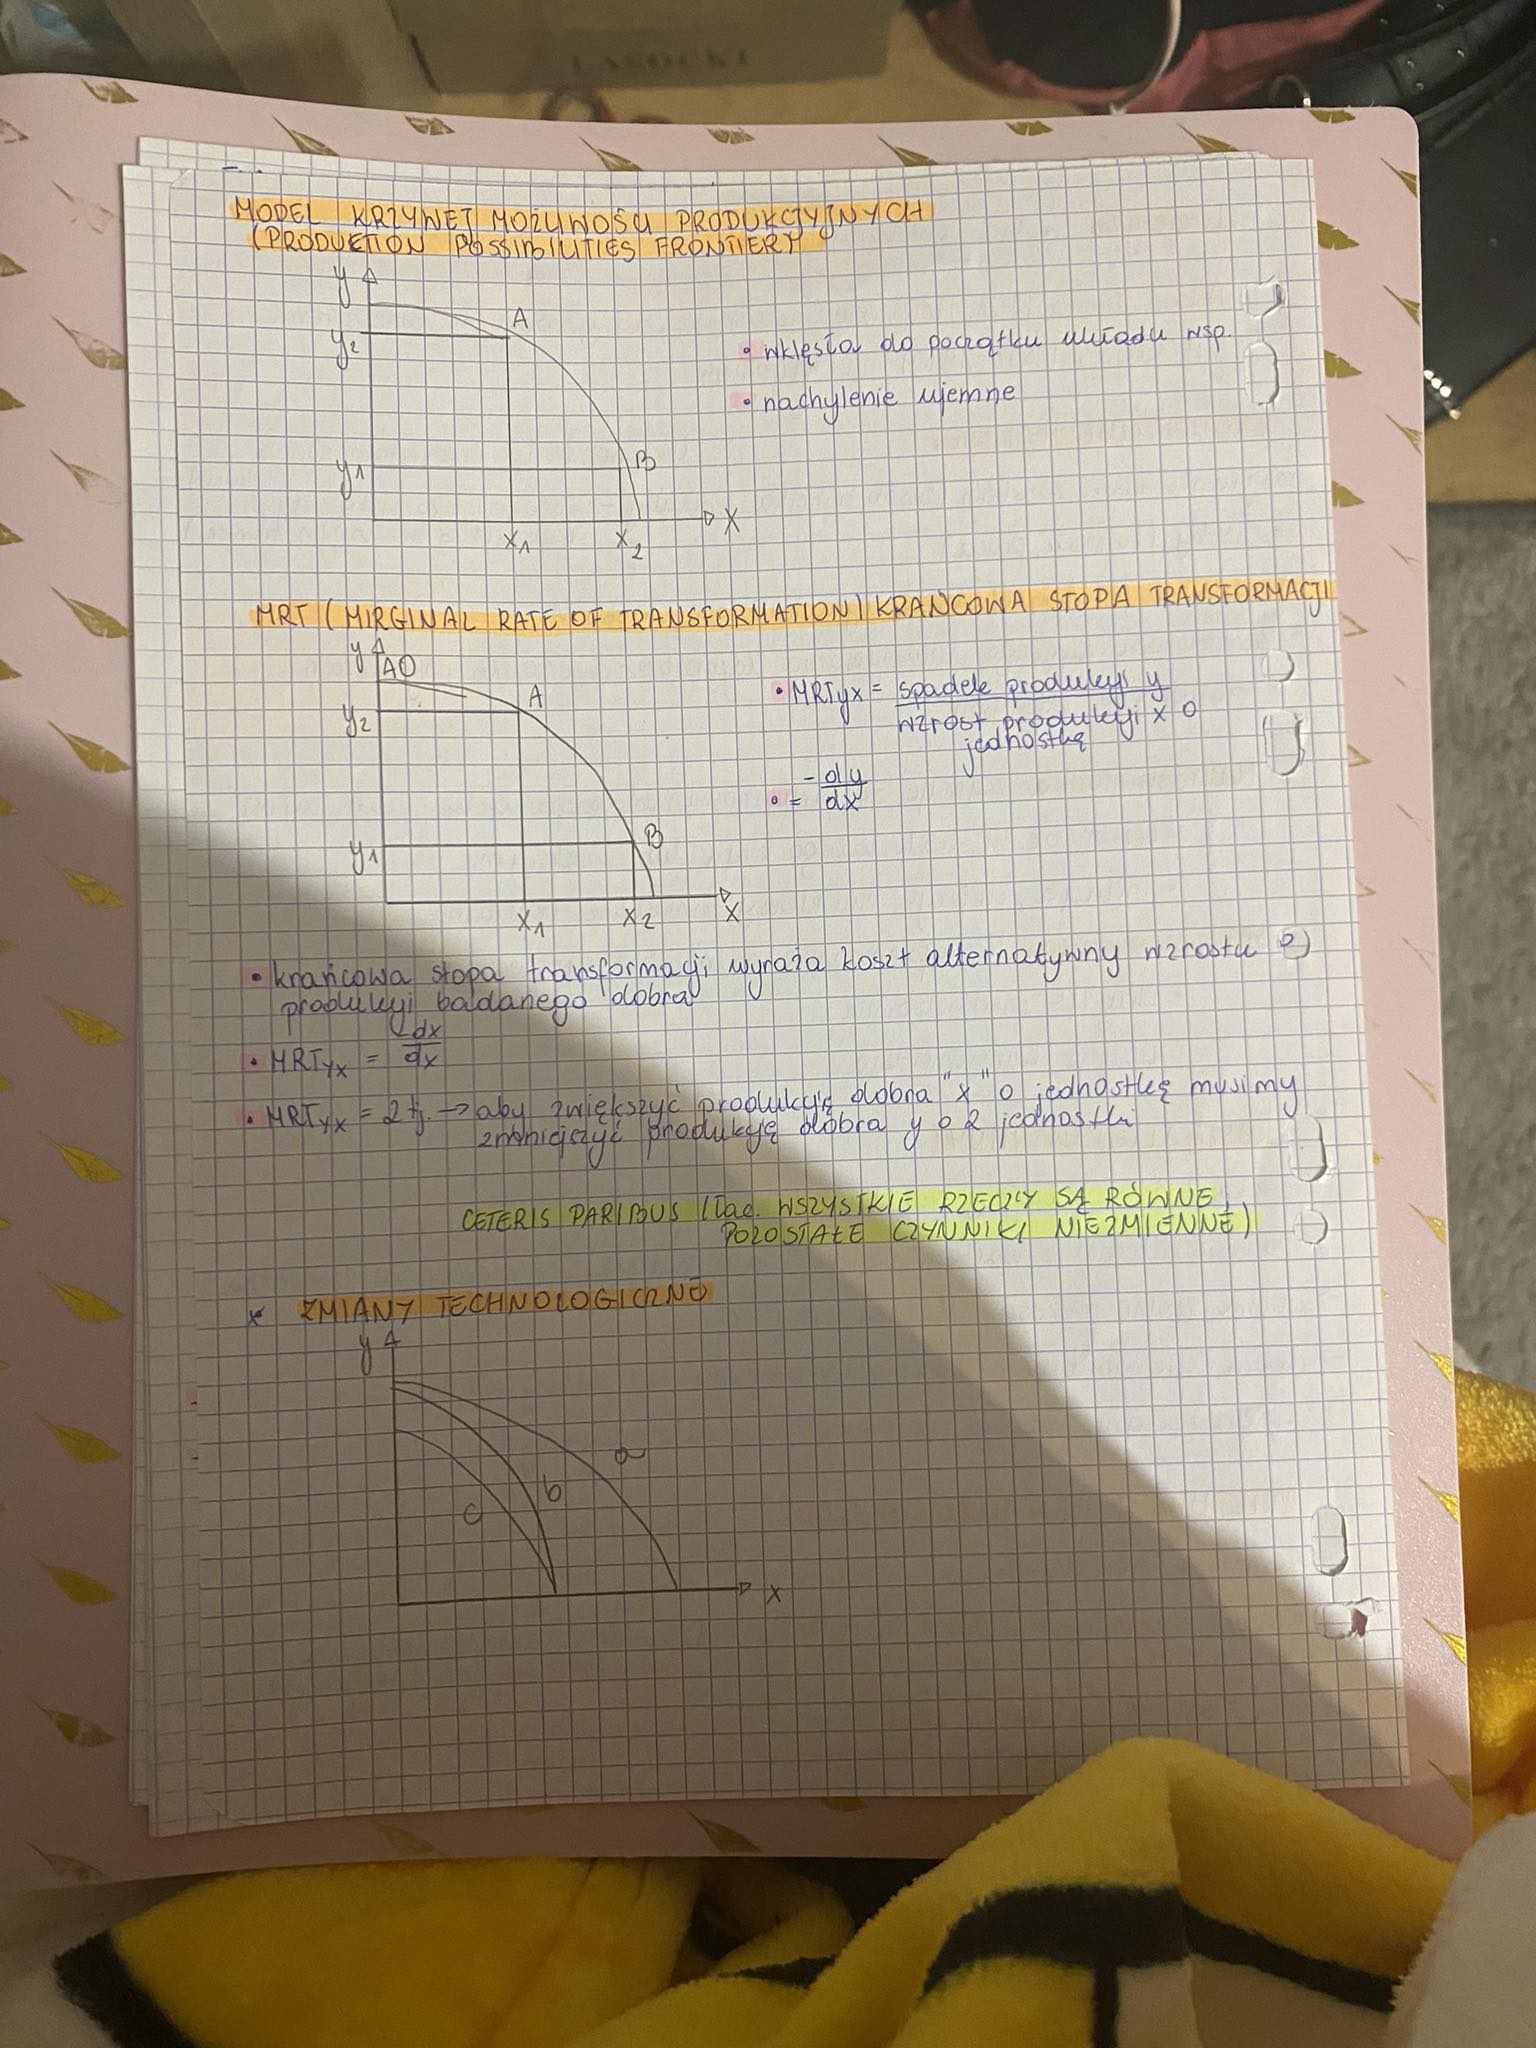 LASOCKI
MODEL KRZYWEJ MOŻLIWOŚCI PRODUKCYJNYCH
(PRODUKTION POSSIBILITIES FRONTIER)
y
A
y2
• wklęsła do początku układu wsp.
• nachylenie ujemne
B
y1
x1
x2
X
MRT (MIRGINAL RATE OF TRANSFORMATION) KRAŃCOWA STOPA TRANSFORMACJI
y
A0
A
y2
• MRTyx = spadek produkcji y
wzrost produkcji x o
jednostkę
• = -dy
dx
B
y1
x1
x2
X
• krańcowa stopa transformacji wyraża koszt alternatywny wzrostu
produkcji badanego dobra
• MRTYX = -dx
dx
• MRTYX = 2 tj. → aby zwiększyć produkcję dobra "x" o jednostkę musimy
zmniejszyć produkcję dobra y o 2 jednostki
CETERIS PARIBUS (łac. WSZYSTKIE RZECZY SĄ RÓWNE,
POZOSTAŁE CZYNNIKI NIEZMIENNE)
* ZMIANY TECHNOLOGICZNE
y
a
b
c
x